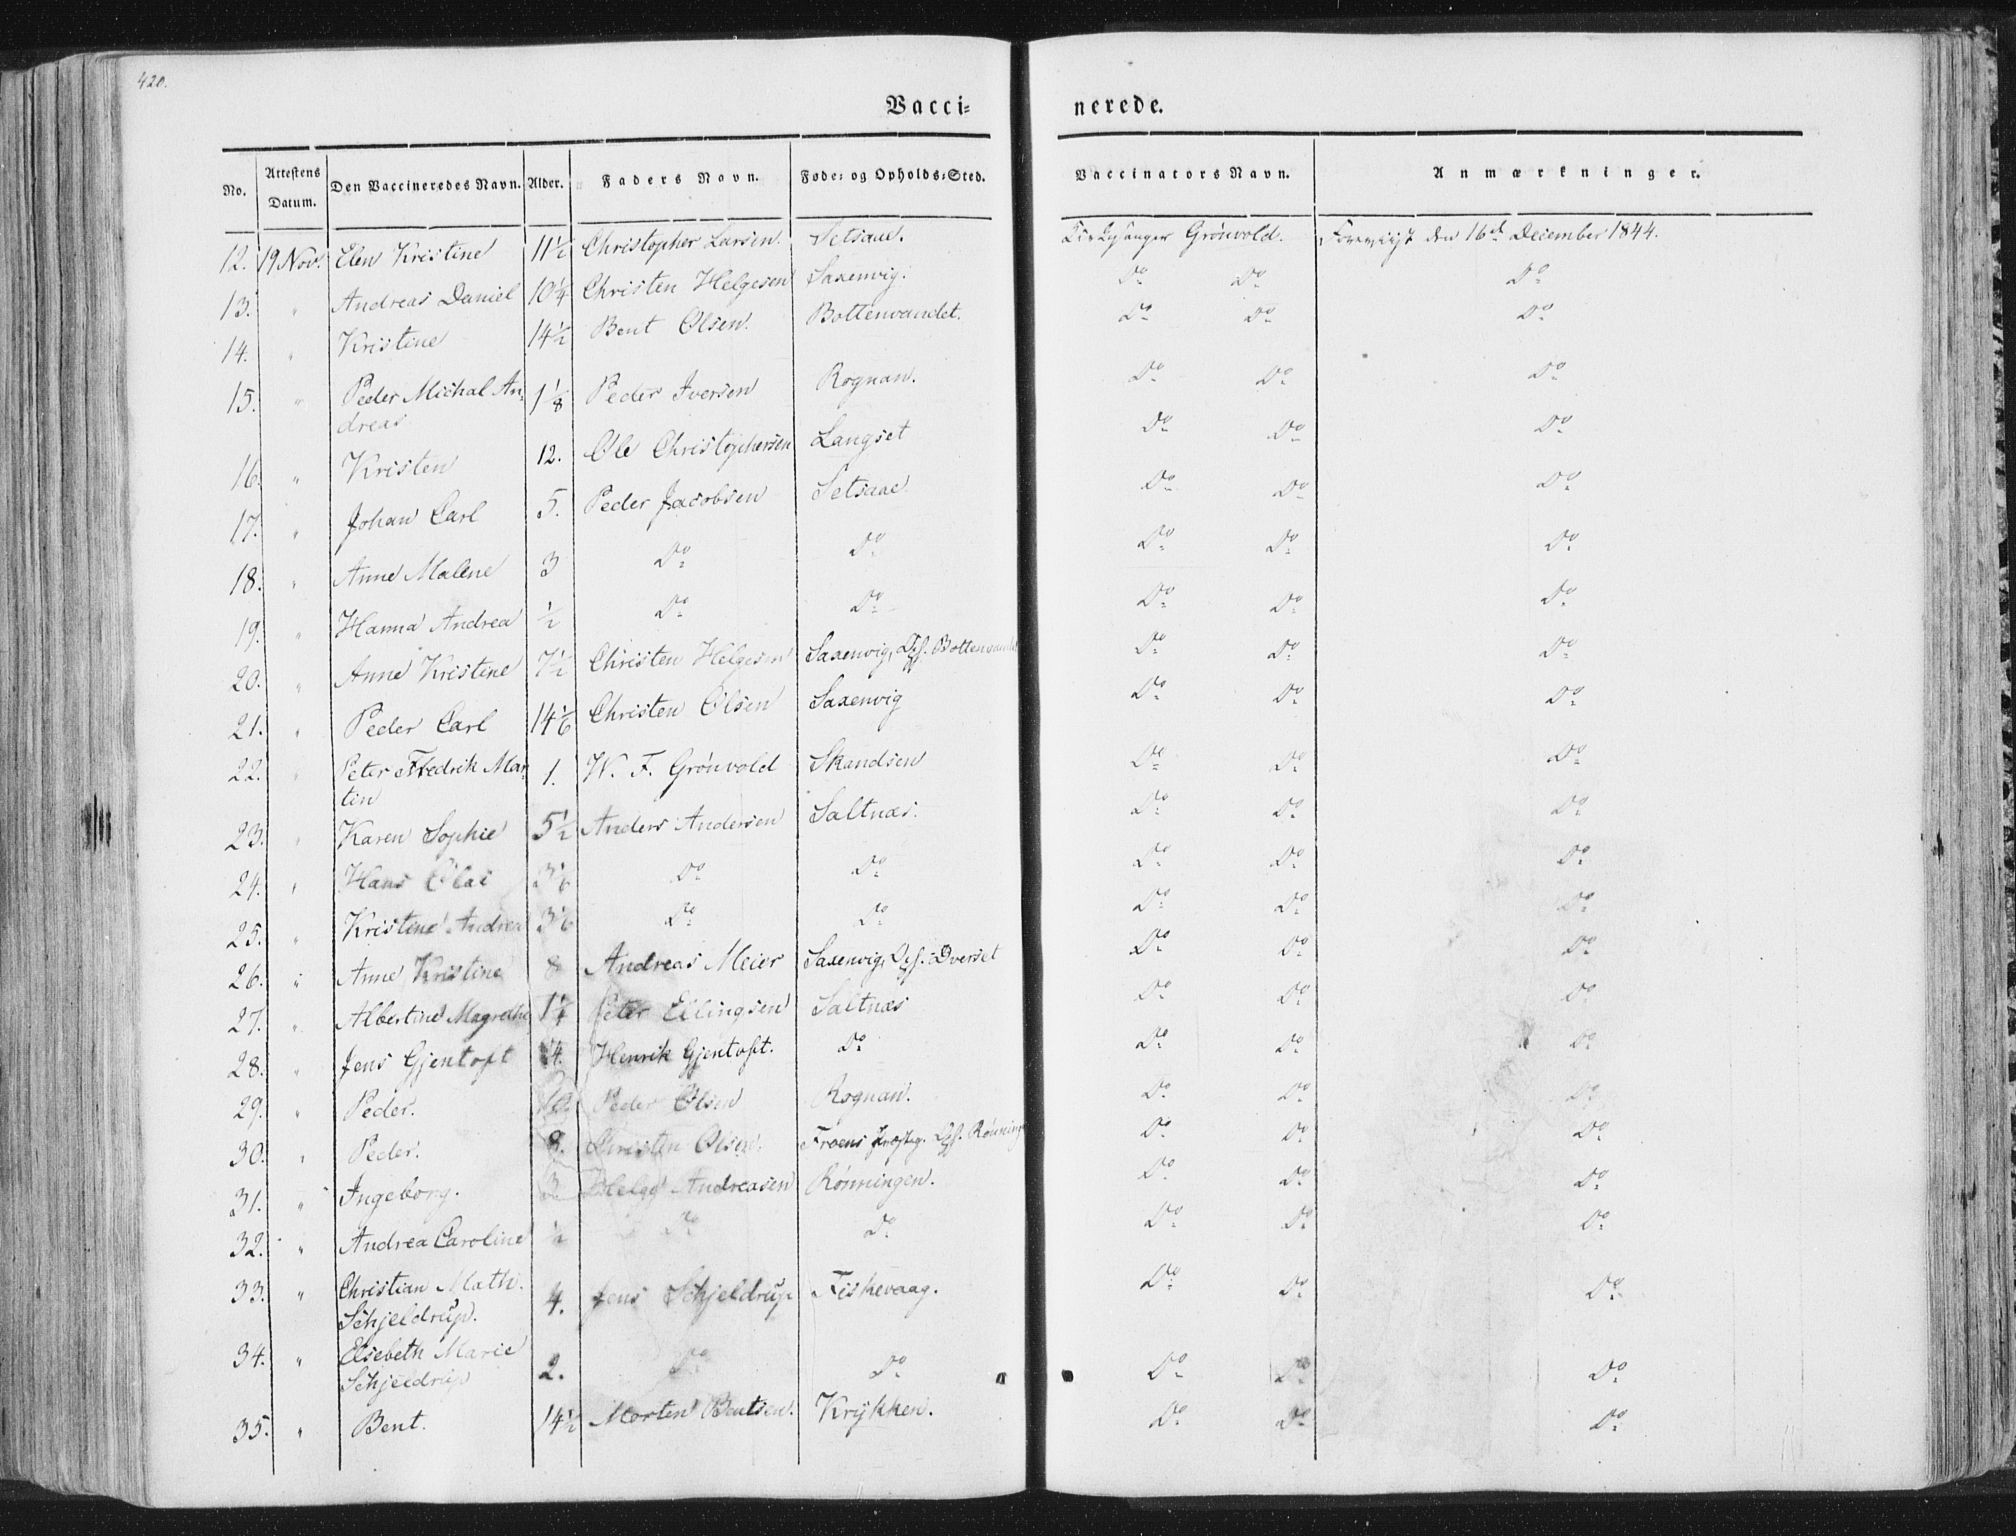 420.
Vacci= nerede.
No. Attestens Datum. Den Vaccineredes Navn. Alder. Faders Navn. Føde= og Opholds=Sted. Vaccinators Navn. Anmærkninger.
12. 19 Nov. Elen Kristine 11 1/2 Christopher Larsen. Setsaae. Kirkesanger Grönvold. Forevist den 16de December 1844.
13. " Andreas Daniel 10 1/4 Christen Helgesen Saxenvig. Do Do Do
14. " Kristine 14 1/2 Bent Olsen. Bottenvandet. Do Do Do
15. " Peder Michal An= 1 1/8 Peder Iversen Rognan. Do Do Do
dreas
16. " Kristen 12. Ole Christophersen Langset Do Do Do
17. " Johan Carl 5. Peder Jacobsen Setsaae Do Do Do
18. " Anne Malene 3 Do Do Do Do Do
19. " Hanna Andrea 1/2 Do Do Do Do Do
20. " Anne Kristine 7 1/2 Christen Helgesen Saxenvig, Opf. Bottenvandet Do Do Do
21. " Peder Carl 14 1/6 Christen Olsen Saxenvig Do Do Do
22. " Peter Fredrik Mar= 1. W. F. Grönvold Skandsen Do Do Do
tin
23. " Karen Sophie 5 1/2 Anders Andersen Saltnæs. Do Do Do
24. " Hans Olai 3 1/6 Do Do Do Do Do
25. " Kristine Andrea 3 1/6 Do Do Do Do Do
26. " Anne Kristine 8 Andreas Meier Saxenvig, Opf. Dverset Do Do Do
27. " Albertine Magrethe Peter Ellingsen Saltnæs Do Do Do
28. " Jens Gjentoft 4. Henrik Gjentoft. Do Do Do Do
29. " Peder. Peder Olsen Rognan. Do Do Do
30. " Peder. 8. Christen Olsen. Froens Præsteg. Opf. Rønningen Do Do Do
31. " Ingeborg. 3. Helge Andreasen Rønningen. Do Do Do
32. " Andrea Caroline 1/2 Do Do Do Do Do
33. " Christian Math. 4. Jens Schjeldrup Fiskevaag. Do Do Do
Schjeldrup.
34. " Elsebeth Marie 2. Do Do Do Do Do
Schjeldrup
35. " Bent. 14 1/2 Morten Bentsen. Krykken. Do Do Do